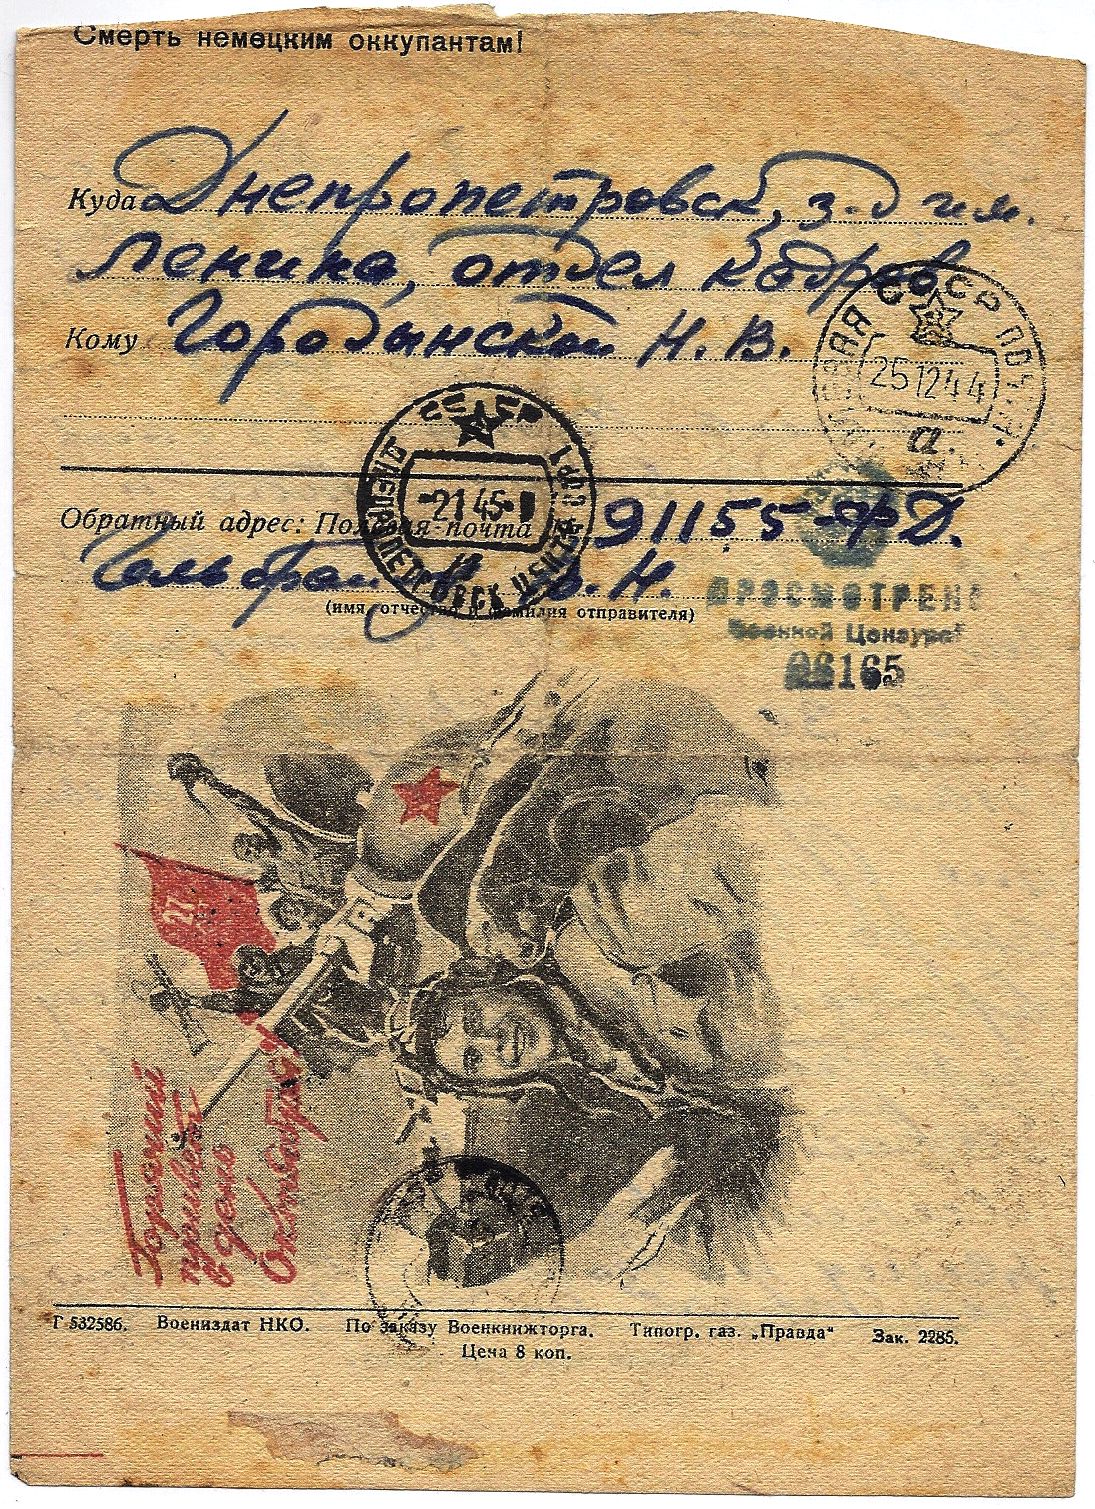 Смерть немецким оккупантам!
Куда Днепропетровск, з-д им.
Ленина, отдел кадров
Кому Городынской Н. В.
СССР ПОЧТА
25 12 44
а
СССР
-2 1 45-
ДНЕПРОПЕТРОВСК
Обратный адрес: Полевая почта 91155-ф Д.
Гельфанд В. Н.
(имя, отчество и фамилия отправителя)
ПРОСМОТРЕНО
Военной Цензурой
06165
27
Горячий
привет
в день
Октября
Г 532586. Воениздат НКО. По заказу Военкнижторга. Типогр. газ. „Правда“ Зак. 2285.
Цена 8 коп.